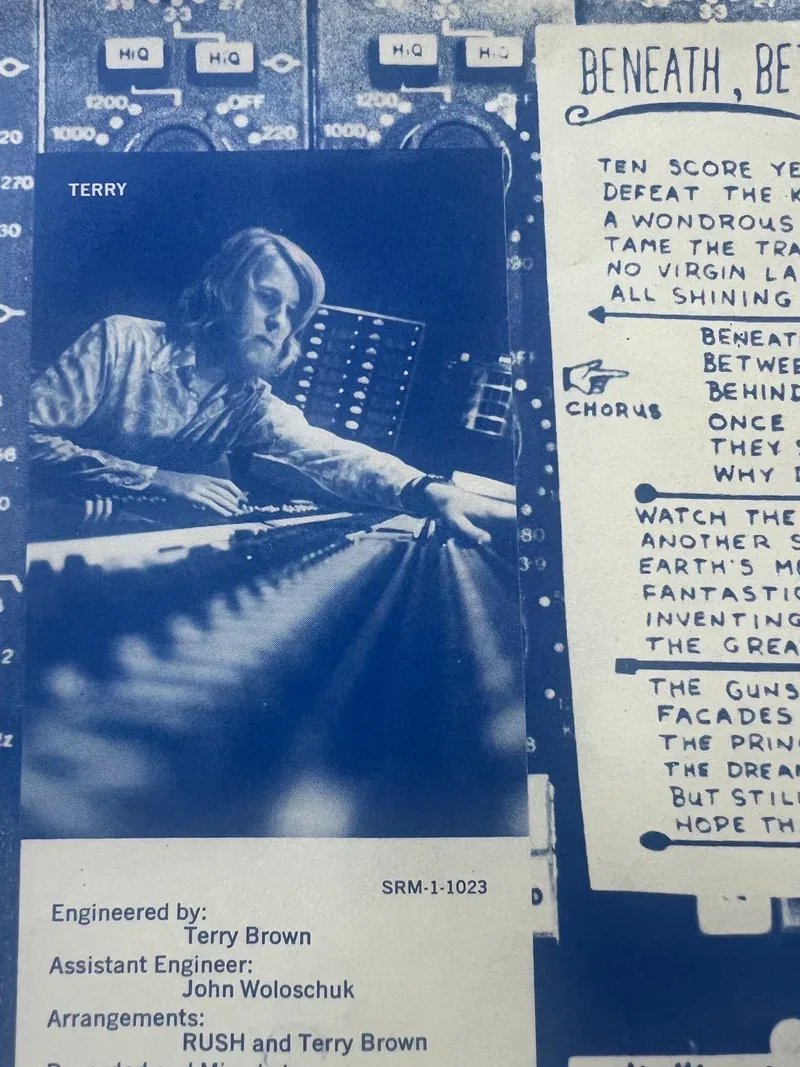 33
27
33
33
HiQ
HiQ
HiQ
HiQ
1200
OFF
1200
1000
220
1000
20
270
30
TERRY
90
80
39
2
SRM-1-1023
Engineered by:
Terry Brown
Assistant Engineer:
John Woloschuk
Arrangements:
RUSH and Terry Brown
BENEATH, BE
TEN SCORE YE
DEFEAT THE K
A WONDROUS
TAME THE TRA
NO VIRGIN LA
ALL SHINING
BENEAT
BETWEE
BEHIND
CHORUS
ONCE
THEY
WHY D
WATCH THE
ANOTHER S
EARTH'S M
FANTASTIC
INVENTING
THE GREA
THE GUNS
FACADES
THE PRIN
THE DREA
BUT STILL
HOPE TH